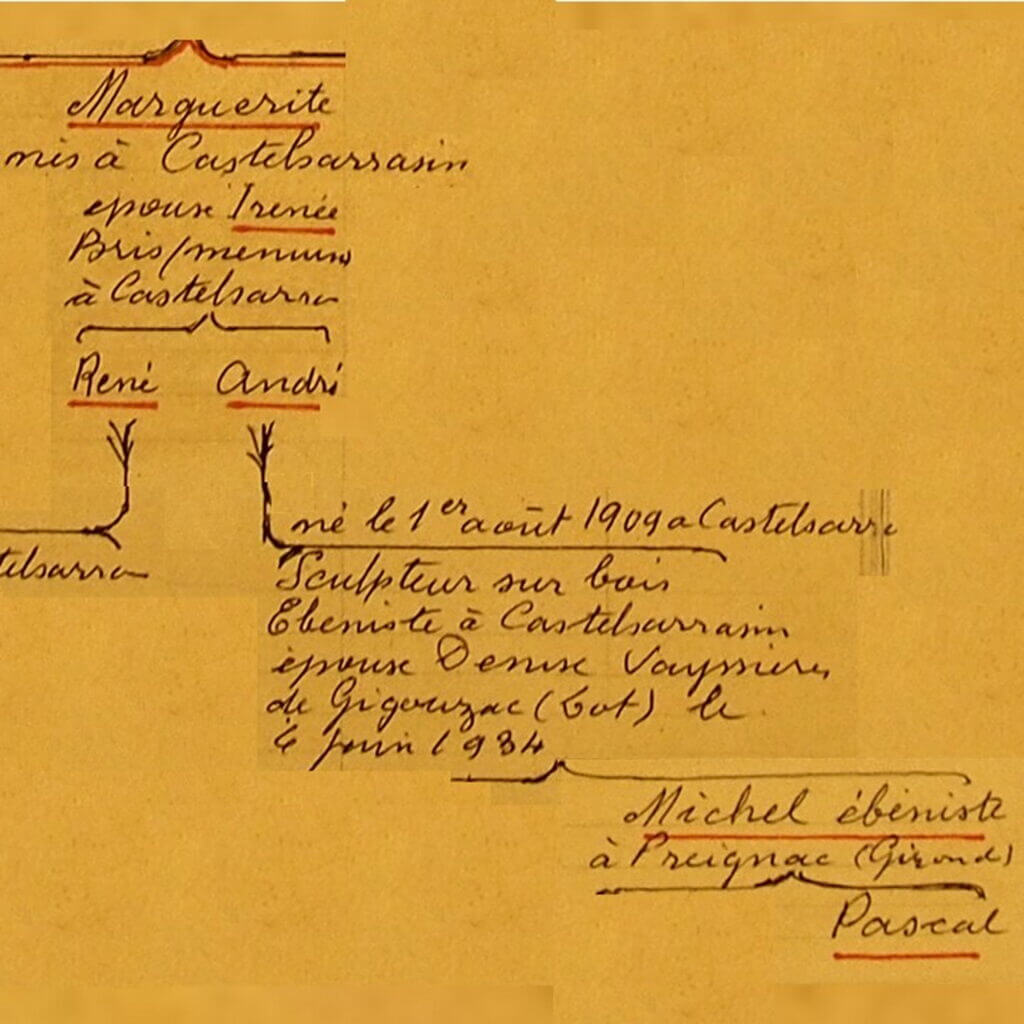 Marguerite
nés à Castelsarrasin
epouse Irenée
Bris/menuis
à Castelsarra
René André
né le 1er août 1909 a Castelsarra
telsarra
Sculpteur sur bois
Ebeniste à Castelsarrasin
épouse Denise Vayssieres
de Gigouzac (Lot) le
juin 1934
Michel ébéniste
à Preignac (Girond)
Pascal